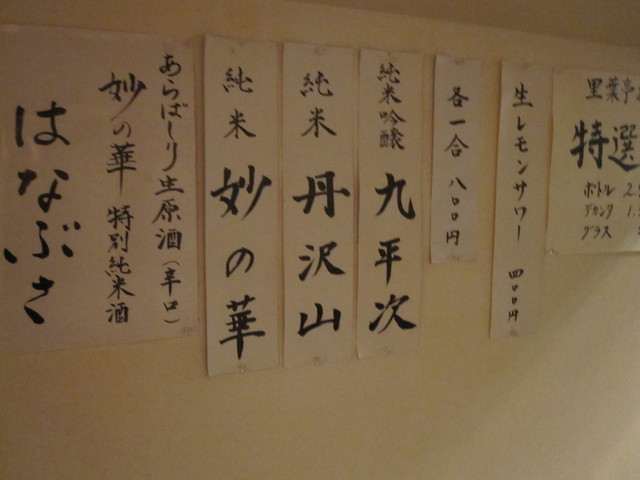 里葉亭
特選
ボトル
デカンタ
グラス
生レモンサワー 四〇〇円
各一合 八〇〇円
純米吟醸 九平次
純米 丹沢山
純米 妙の華
あらばしり生原酒(辛口)
妙の華 特別純米酒
はなぶさ